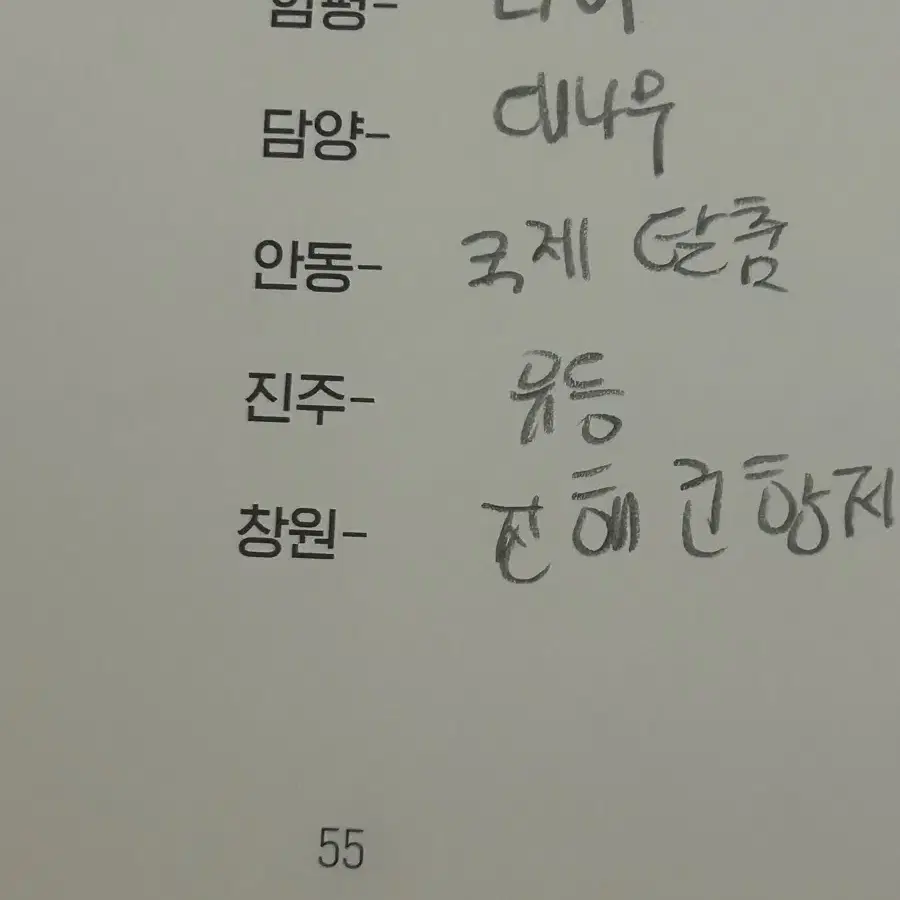 함평-
담양- 대나무
안동- 국제 탈춤
진주- 유등
창원- 진해 군항제
55